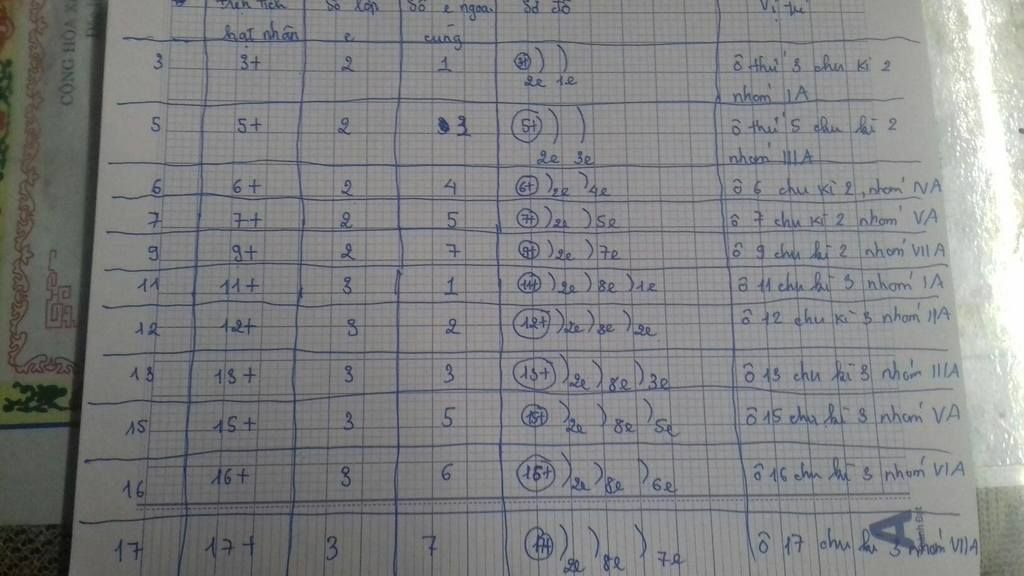 điện tích số lớp số e ngoài sơ đồ vị trí
hạt nhân e cùng
3 3+ 2 1 3+ ) ) ô thứ 3 chu kì 2
2e 1e nhóm IA
5 5+ 2 3 5+ ) ) ô thứ 5 chu kì 2
2e 3e nhóm IIIA
6 6+ 2 4 6+ )2e )4e ô 6 chu kì 2, nhóm IVA
7 7+ 2 5 7+ )2e )5e ô 7 chu kì 2 nhóm VA
9 9+ 2 7 9+ )2e )7e ô 9 chu kì 2 nhóm VIIA
11 11+ 3 1 11+ )2e )8e )1e ô 11 chu kì 3 nhóm IA
12 12+ 3 2 12+ )2e )8e )2e ô 12 chu kì 3 nhóm IIA
13 13+ 3 3 13+ )2e )8e )3e ô 13 chu kì 3 nhóm IIIA
15 15+ 3 5 15+ )2e )8e )5e ô 15 chu kì 3 nhóm VA
16 16+ 3 6 16+ )2e )8e )6e ô 16 chu kì 3 nhóm VIA
17 17+ 3 7 17+ )2e )8e )7e ô 17 chu kì 3 nhóm VIIA
CỘNG HÒA X
A